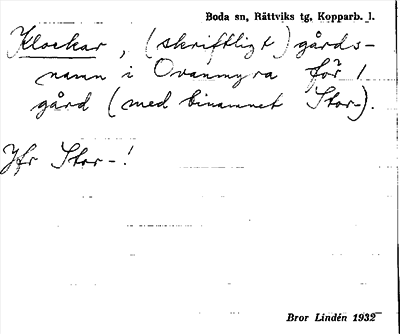 Boda sn, Rättviks tg, Kopparb. l.
Klockar, (skriftligt) gårds-
namn i Ovanmyra för 1
gård (med binamnet Stor-).
Jfr Stor-!
Bror Lindén 1932